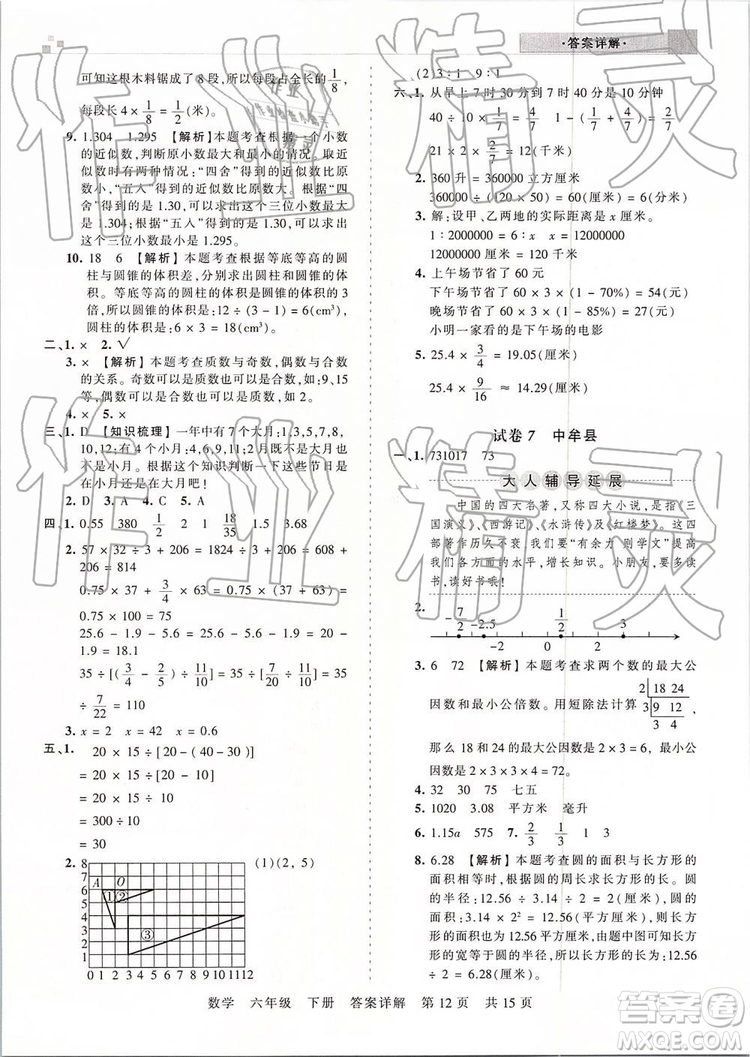 ·答案详解·
可知这根木料锯成了 8 段，所以每段占全长的 1/8，
每段长 4 × 1/8 = 1/2 (米)。
9. 1.304 1.295 【解析】本题考查根据一个小数
的近似数，判断原小数最大和最小的情况。取近
似数有两种情况：“四舍”得到的近似数比原
数小，“五入”得到的近似数比原数大。根据“四
舍”得到的近似数是 1.30，可以求出这个三位小
数最大是 1.304；根据“五入”得到的近似数是 1.30，可以求出
这个三位小数最小是 1.295。
10. 18 6 【解析】本题考查根据等底等高的圆
柱与圆锥的体积差，分别求出圆柱与圆锥的体
积。等底等高的圆柱的体积是圆锥的体积的 3
倍，所以圆锥的体积是：12 ÷ (3 - 1) = 6(cm³)，
圆柱的体积是：6 × 3 = 18(cm³)。
二、1. × 2. √
3. × 【解析】本题考查质数与奇数，偶数与合数
的关系。奇数可以是质数也可以是合数，如：9、15
等，偶数可以是质数也可以是合数，如：2、8。
4. × 5. ×
三、1. D 【知识梳理】一年中有 7 个大月：1,3,5,7,8,
10,12；有 4 个小月：4,6,9,11，既不是大月也不
是小月的是 2 月。
2. D 3. A 4. C 5. A
四、1. 0.55 380 1/2 2 1 18/35 1.5 3
2. 57 × 32 ÷ 3 + 206 = 1824 ÷ 3 + 206 = 608 +
206 = 814
3/4 × 37 + 0.75 × 63 = 0.75 × (37 + 63) =
0.75 × 100 = 75
25.6 - 1.9 - 5.6 = 25.6 - 5.6 - 1.9 = 20 -
1.9 = 18.1
35 ÷ [(3/4 - 2/11) × 11/10] = 35 ÷ [25/44 × 11/10] = 35
÷ 7/22 = 110
3. x = 2 x = 42 x = 0.6
五、1. 20 × 15 ÷ [20 - (40 - 30)]
= 20 × 15 ÷ [20 - 10]
= 20 × 15 ÷ 10
= 300 ÷ 10
= 30
2.
8
7
6
5
4
3
2
1
A O
① ②
③
0 1 2 3 4 5 6 7 8 9 10 11 12
(1)(2，5)
(2)3∶1 9∶1
六、1. 从早上 7 时 30 分到 7 时 40 分是 10 分钟
2. 360 升 = 360000 立方厘米
360000 ÷ (20 × 50) = 360(厘米)
3. 解：设甲、乙两地的实际距离是 x 厘米。
12000000 厘米 = 120 千米
4. 上午场节省了 60 × 3 ÷ 2 = 90(元)
晚场节省了 60 × 3 × (1 - 70%) = 54(元)
小明一家看的是下午场的电影
5. 25.4 × 3/4 = 19.05(厘米)
25.4 × 9/16 ≈ 14.29(厘米)
试卷 7 中牟县
一、1. 731017 73
大人辅导延展
中国的四大名著，又称四大小说，是指《三
国演义》、《西游记》、《水浒传》及《红楼梦》。这四
部著作历久不衰！我们要“有余力 则学文”提高
我们各方面的素养，增加知识。小朋友，要多阅读
书，读好书哦！
2. -7/2 -2.5 1/2 3
-2 0 2
3. 6 72 【解析】本题考查求两个数的最大公
因数和最小公倍数。用短除法计算
2 18 24
3 9 12
3 4
那么 18 和 24 的最大公因数是 2 × 3 = 6，最小公
倍数是 2 × 3 × 3 × 4 = 72。
4. 32 30 75 七五
5. 1020 3.08 平方米 毫升
6. 1.15a 575 7. 2/3 1/3 1
8. 6.28 【解析】本题考查圆的面积与长方形的
面积的关系。根据圆的周长求长方形的长。
圆的半径：12.56 ÷ 3.14 ÷ 2 = 2(厘米)，圆的面
积：3.14 × 2² = 12.56(平方厘米)，则长方形的
面积也为 12.56 平方厘米；由图可知长方形的
宽等于圆的半径，所以长方形的长为：12.56 ÷ 2
= 6.28(厘米)。
数学 六年级 下册 答案详解 第 12 页 共 15 页
作业精灵
答案圈
MXQE.COM